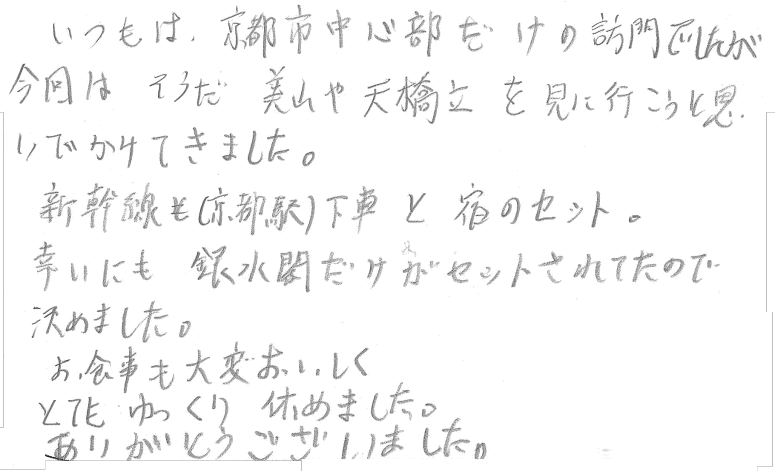 いつもは、京都市中心部だけの訪問でしたが
今回は そうだ 美山や天橋立を見に行こうと思
いでかけてきました。
新幹線も(京都駅)下車と宿のセット。
幸いにも 銀水閣だけがセットされてたので
決めました。
お食事も大変おいしく
とてもゆっくり 休めました。
ありがとうございました。